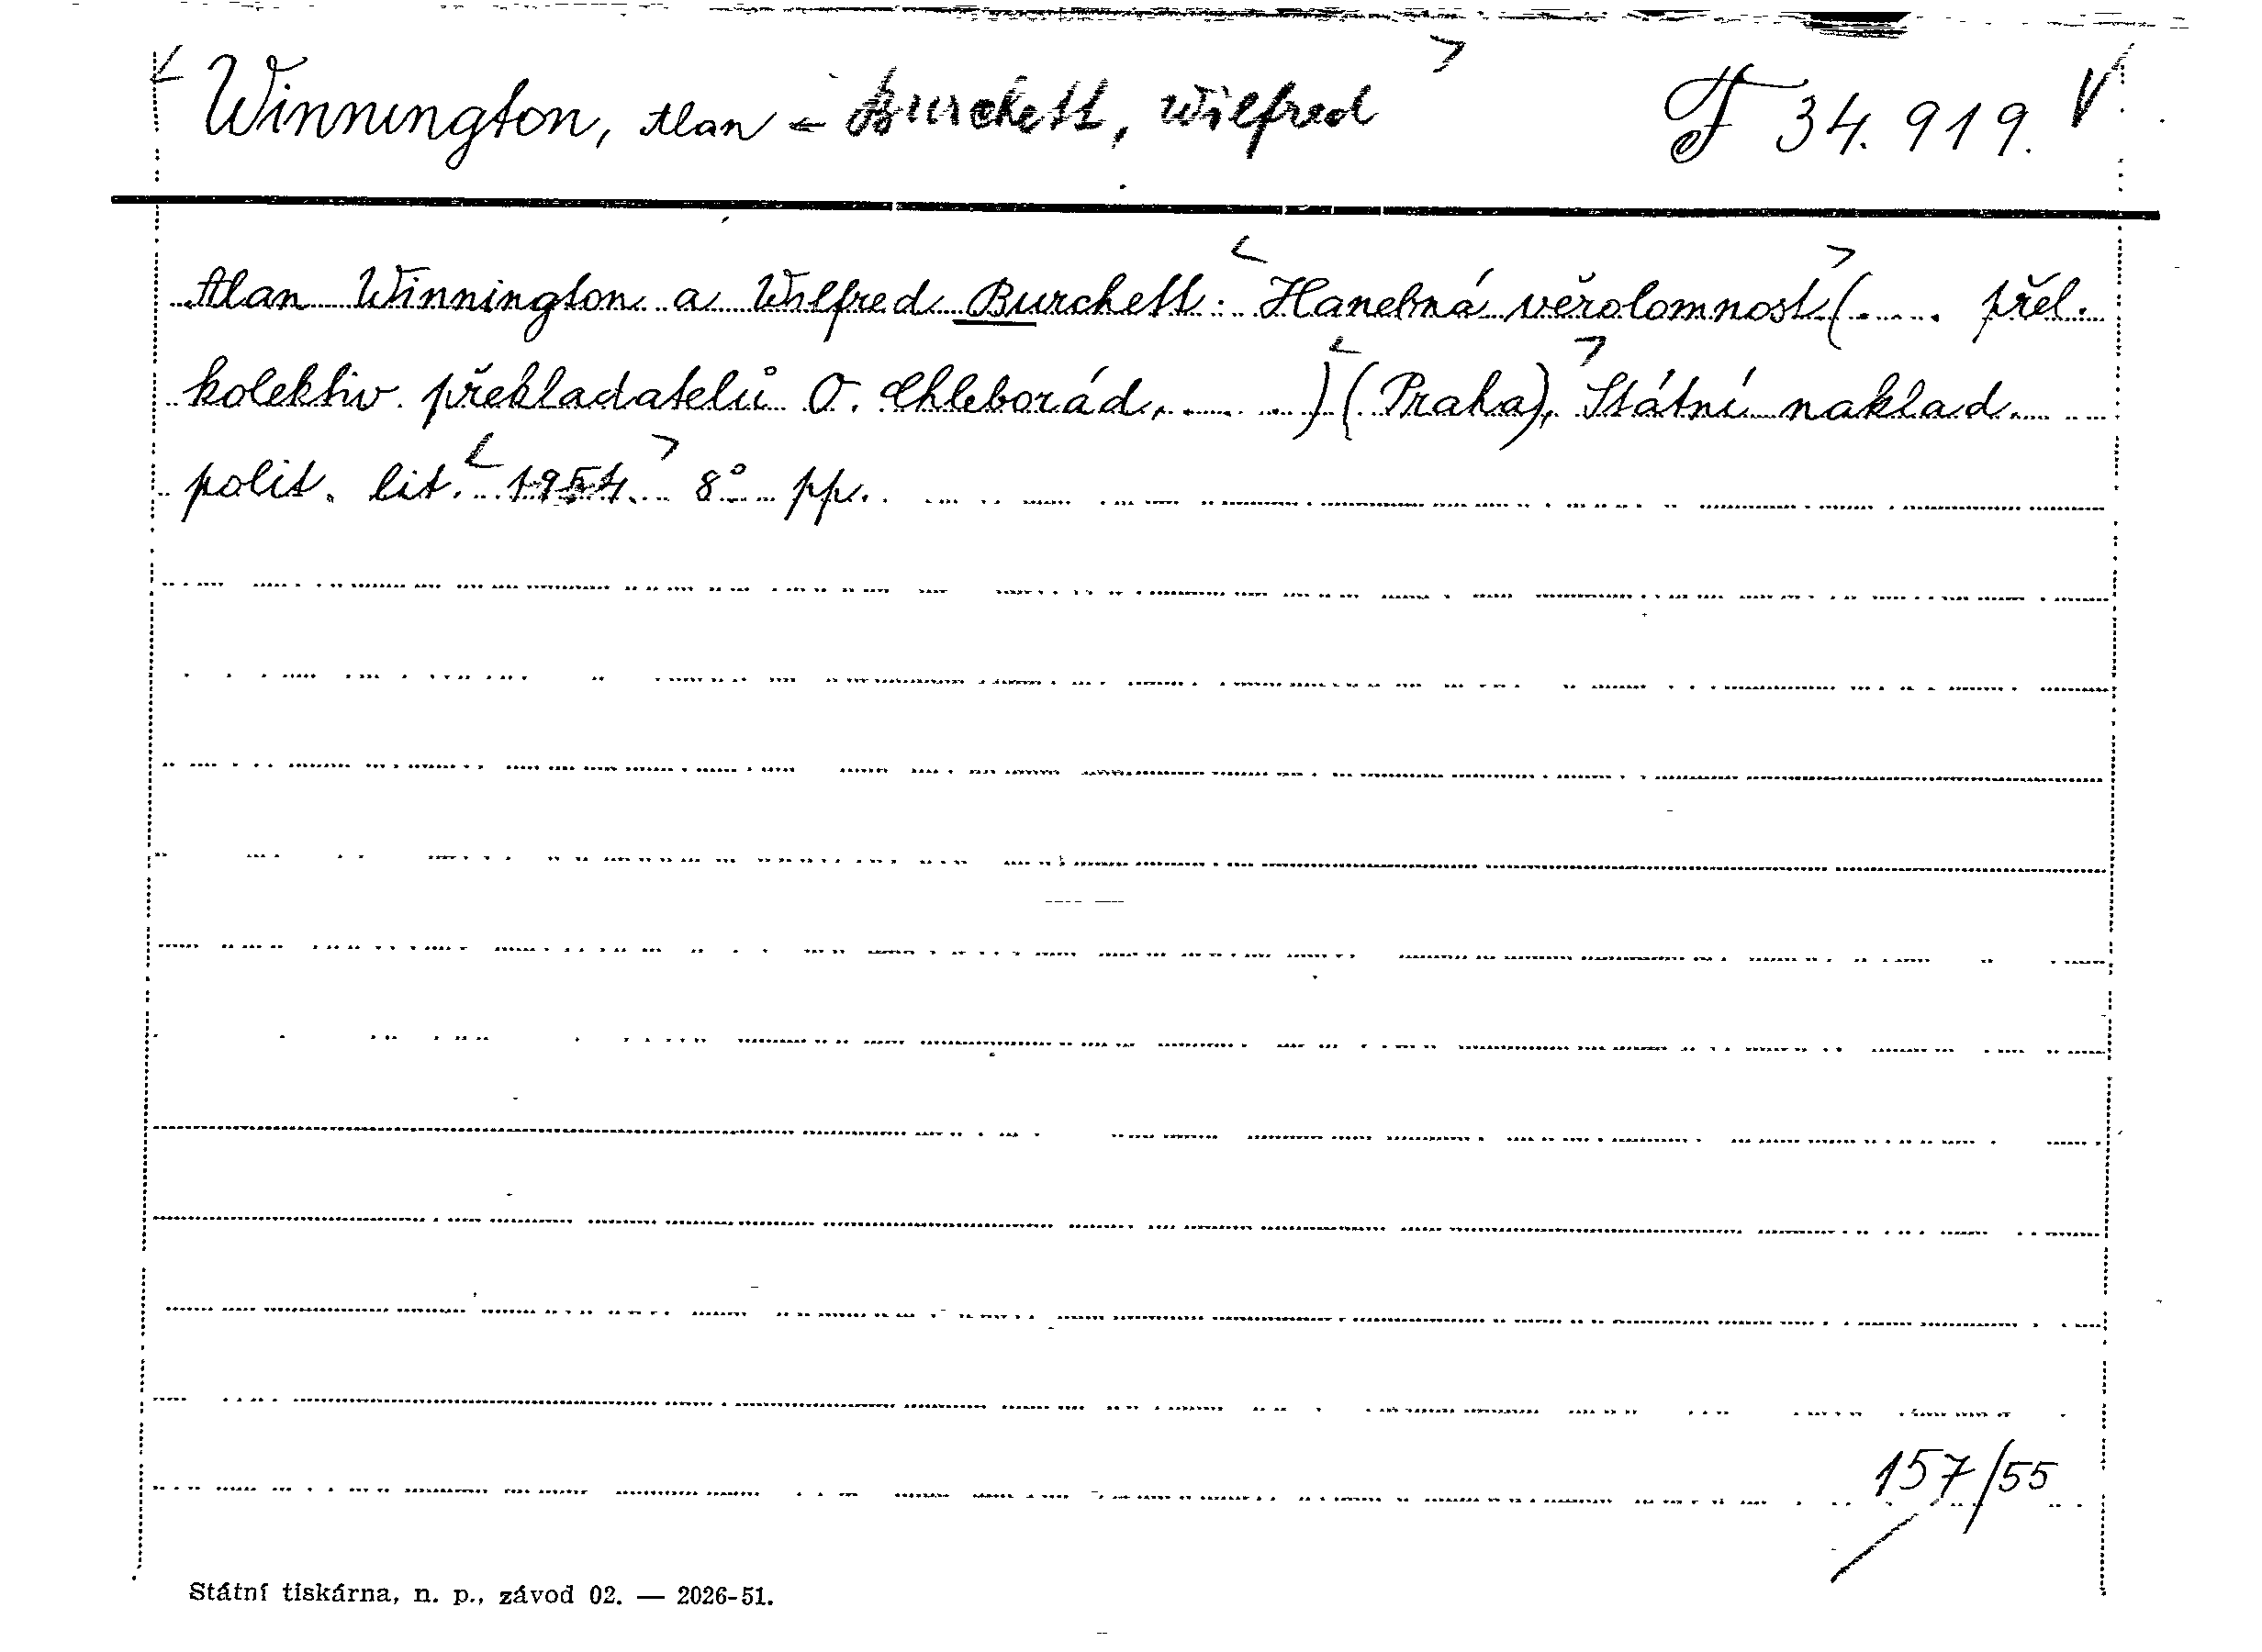 < Winnington, Alan - Burchett, Wilfred > F 34.919. V
Alan Winnington a Wilfred Burchett: <Hanebná věrolomnost> (..... přel.
kolektiv překladatelů O. Chleborád, .....) <(Praha),> Státní naklad.
polit. lit. <1954.> 8° pp.
157/55
Státní tiskárna, n. p., závod 02. — 2026-51.